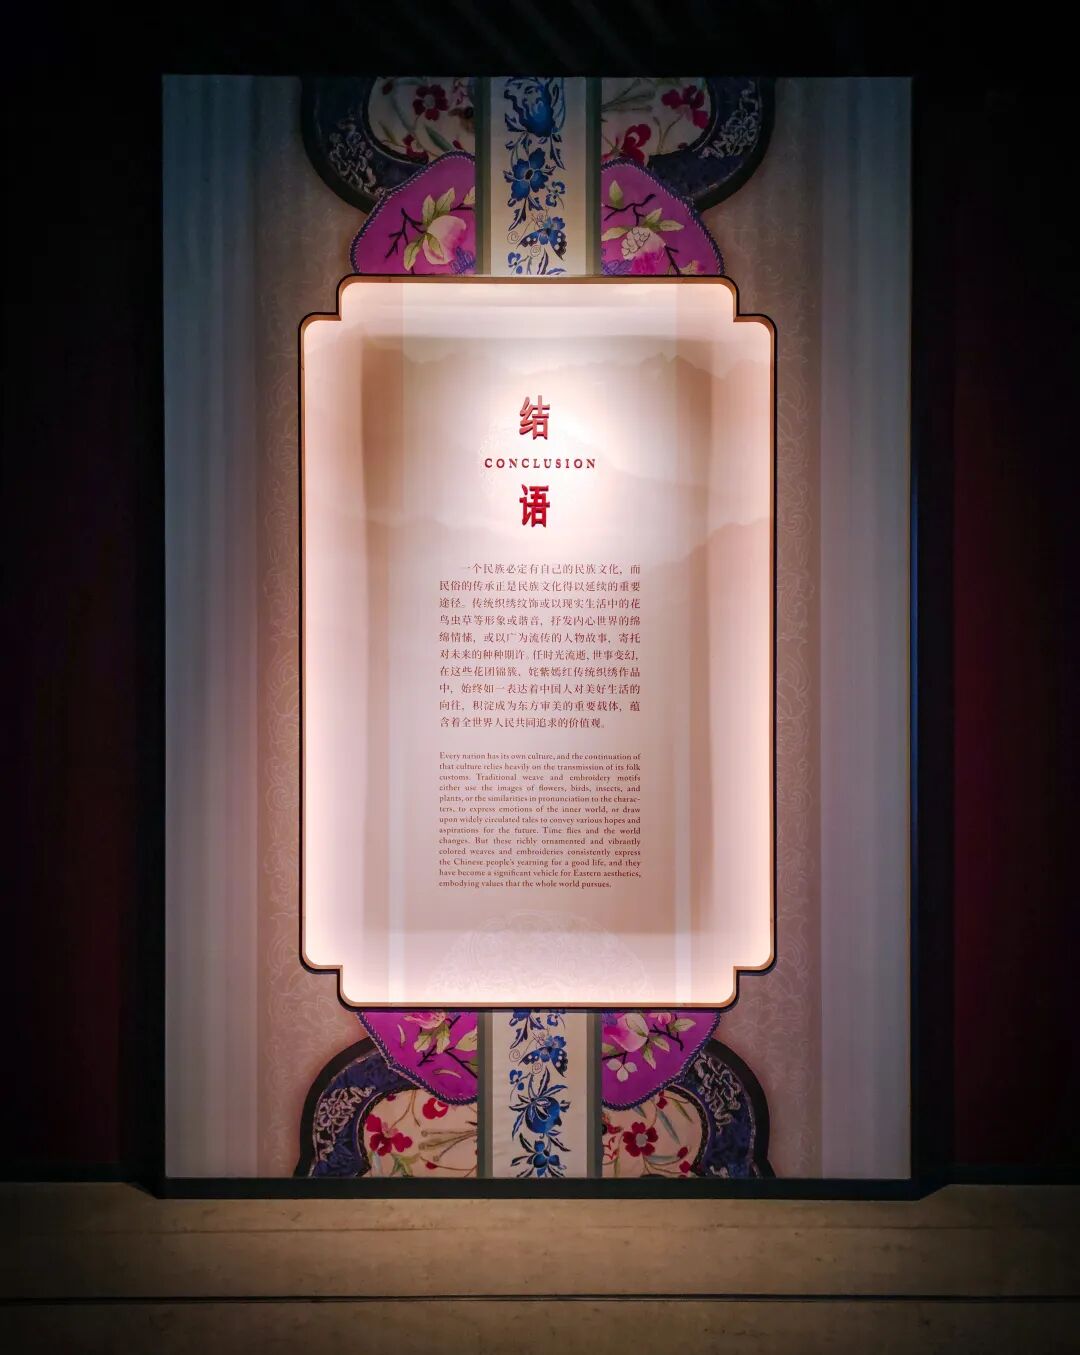 结
CONCLUSION
语
一个民族必定有自己的民族文化，而
民俗的传承正是民族文化得以延续的重要
途径。传统织绣纹饰或以现实生活中的花
鸟虫草等形象或谐音，抒发内心世界的绵
绵情愫，或以广为流传的人物故事，寄托
对未来的种种期许。任时光流逝、世事变幻，
在这些花团锦簇、姹紫嫣红传统织绣作品
中，始终如一表达着中国人对美好生活的
向往，积淀成为东方审美的重要载体，蕴
含着全世界人民共同追求的价值观。
Every nation has its own culture, and the continuation of
that culture relies heavily on the transmission of its folk
customs. Traditional weave and embroidery motifs
either use the images of flowers, birds, insects, and
plants, or the similarities in pronunciation to the charac-
ters, to express emotions of the inner world, or draw
upon widely circulated tales to convey various hopes and
aspirations for the future. Time flies and the world
changes. But these richly ornamented and vibrantly
colored weaves and embroideries consistently express
the Chinese people's yearning for a good life, and they
have become a significant vehicle for Eastern aesthetics,
embodying values that the whole world pursues.